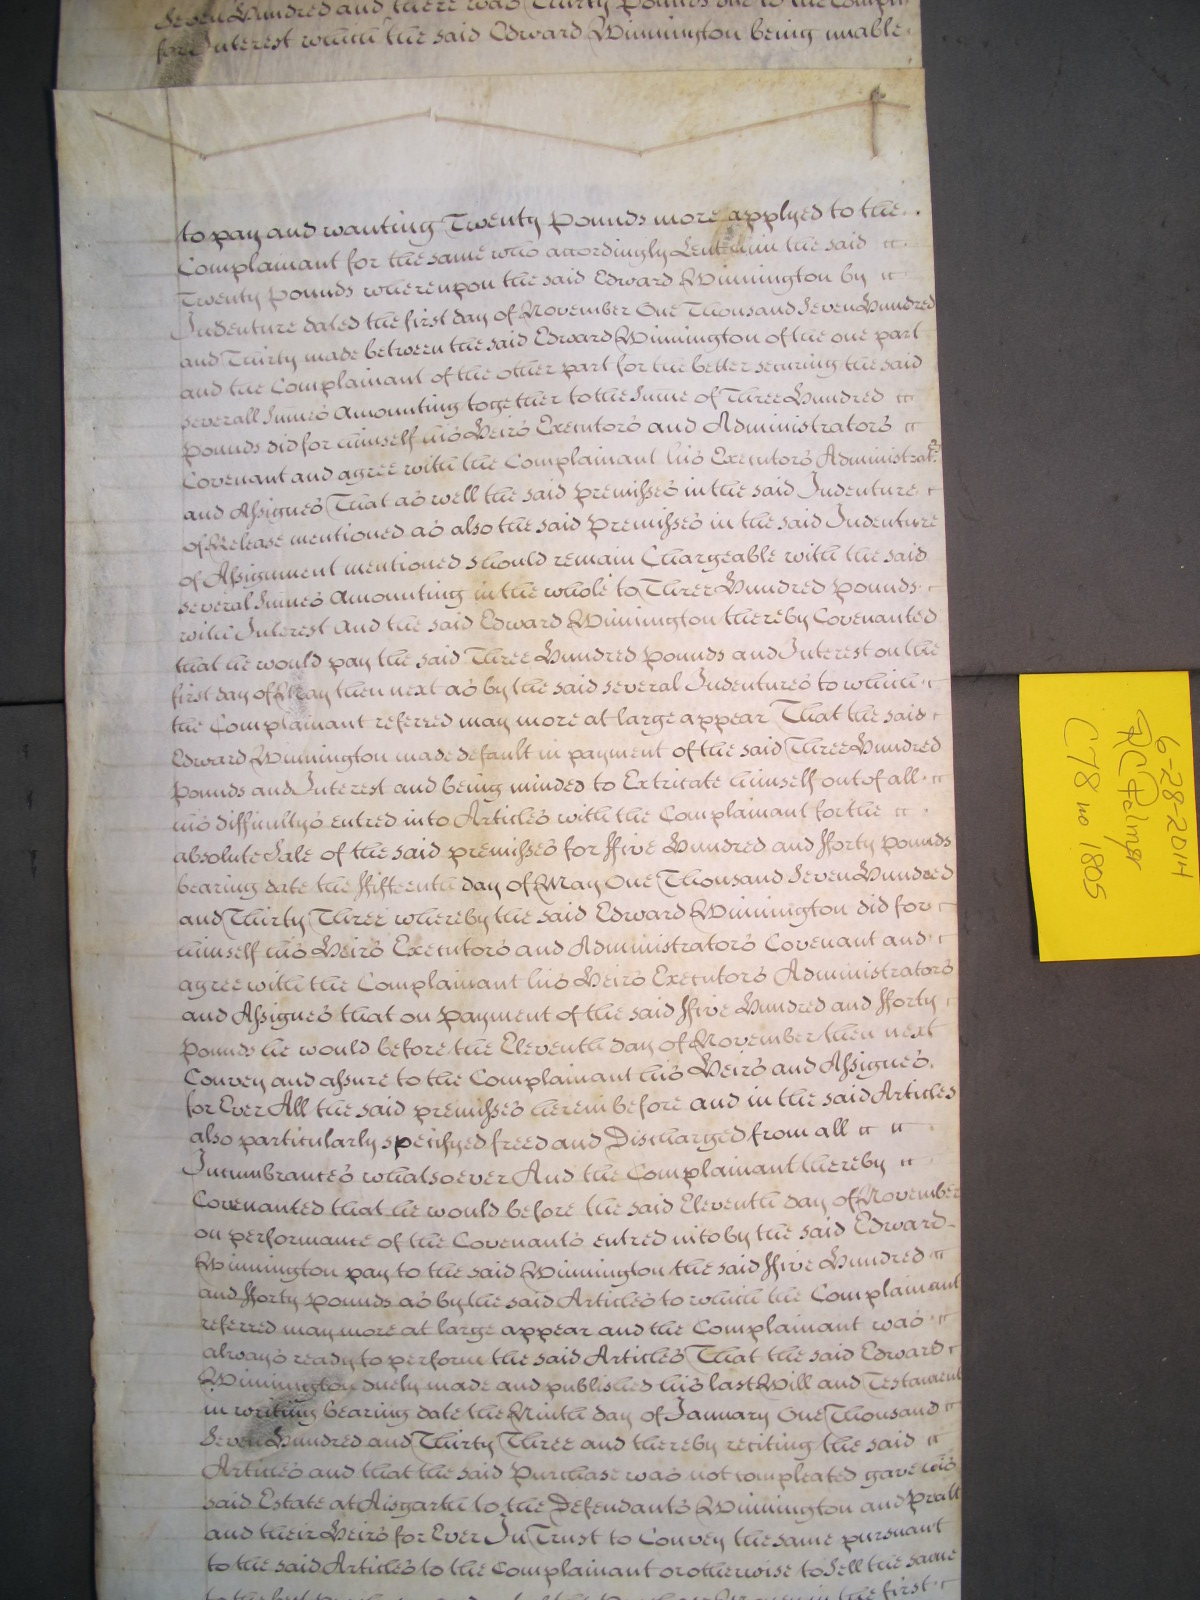 Seven Hundred and there was Thirty Pounds due to the Compl
for Interest which the said Edward Winnington being unable
to pay and wanting Twenty Pounds more applyed to the
Complainant for the same who accordingly Lent him the said
Twenty Pounds whereupon the said Edward Winnington by
Indenture dated the first day of November One Thousand Seven Hundred
and Thirty made between the said Edward Winnington of the one part
and the Complainant of the other part for the better securing the said
severall Summes Amounting together to the Summe of Three Hundred
pounds did for himself his Heirs Executors and Administrators
Covenant and agree with the Complainant his Executors Administrat.rs
and Assignes That as well the said premisses in the said Indenture
of Release mentioned as also the said Premisses in the said Indenture
of Assignment mentioned should remain Chargeable with the said
several Summes Amounting in the whole to Three Hundred pounds
with Interest And the said Edward Winnington thereby Covenanted
that he would pay the said Three Hundred Pounds and Interest on the
first day of May then next as by the said several Indentures to which
the Complainant referred may more at large appear That the said
Edward Winnington made default in payment of the said Three Hundred
pounds and Interest and being minded to Extricate himself out of all
his difficultys entred into Articles with the Complainant for the
absolute Sale of the said premisses for ffive Hundred and fforty pounds
bearing date the ffifteenth day of May One Thousand Seven Hundred
and Thirty Three whereby the said Edward Winnington did for
himself his Heirs Executors and Administrators Covenant and
agree with the Complainant his Heirs Executors Administrators
and Assignes that on Payment of the said ffive Hundred and fforty
Pounds he would before the Eleventh day of November then next
Convey and assure to the Complainant his Heirs and Assignes
for Ever All the said premisses herein before and in the said Articles
also particularly specifyed freed and Discharged from all
Incumbrances whatsoever And the Complainant thereby
Covenanted that he would before the said Eleventh day of November
on performance of the Covenants entred into by the said Edward
Winnington pay to the said Winnington the said ffive Hundred
and fforty pounds as by the said Articles to which the Complainant
referred may more at large appear and the Complainant was
always ready to perform the said Articles That the said Edward
Winnington duely made and published his last Will and Testament
in writing bearing date the Ninth day of January One Thousand
Seven Hundred and Thirty Three and thereby reciting the said
Articles and that the said Purchase was not compleated gave his
said Estate at Aisgarth to the Defendants Winnington and Pratt
and their Heirs for Ever In Trust to Convey the same pursuant
to the said Articles to the Complainant or otherwise to Sell the same
in the first
6-28-2014
RC Palmer
C78 no 1805